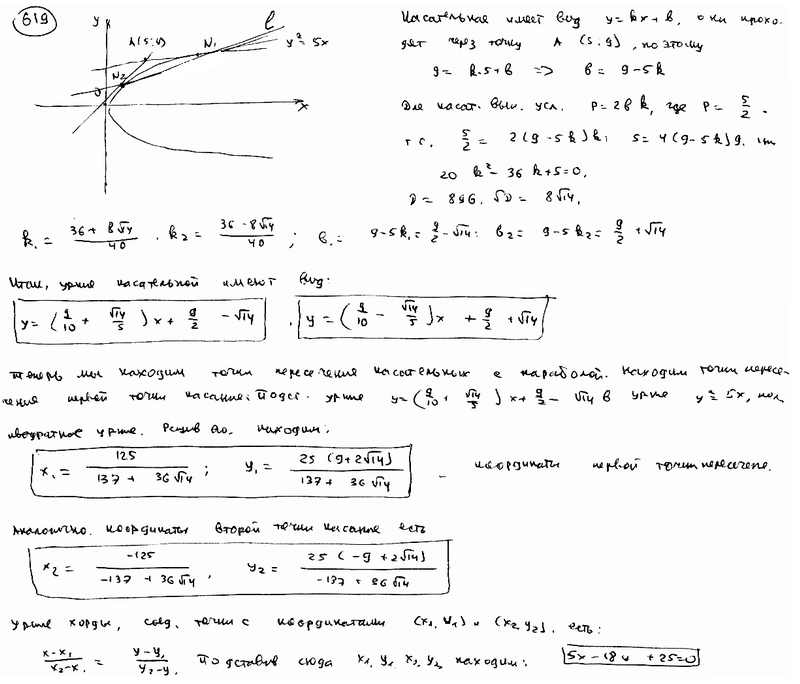 619
y
A(5;9)
N₁
N₂
l
y² = 5x
0
x
Касательная имеет вид y = kx + в, они прохо-
дят через точку A (5.9), поэтому
9 = k·5 + в => в = 9 - 5k
Для касат. вып. усл. P = 2вk, где P = 5/2 .
т.е. 5/2 = 2(9-5k)k; 5 = 4(9-5k)
20 k² - 36 k + 5 = 0,
D = 896. √D = 8√14,
k₁ = (36 + 8√14)/40 , k₂ = (36 - 8√14)/40 ; в₁ = 9-5k₁ = 9/2 - √14; в₂ = 9-5k₂ = 9/2 + √14
Итак, ур-ние касательной имеют вид:
y = (9/10 + √14/5)x + 9/2 - √14 , y = (9/10 - √14/5)x + 9/2 + √14
Теперь мы находим точки пересечения касательных с параболой. Находим точки пересе-
чения первой точки касание: Подст. ур-ние y = (9/10 + √14/5)x + 9/2 - √14 в ур-ние y² = 5x, пол.
квадратное ур-ние. Решив его, находим:
x₁ = 125/(137 + 36√14) ; y₁ = 25(9+2√14)/(137 + 36√14) - координаты первой точки пересечение.
Аналогично. координаты второй точки касание есть
x₂ = -125/(-137 + 36√14) , y₂ = 25(-9+2√14)/(-137 + 36√14)
Ур-ние хорды, соед. точки с координатами (x₁, y₁) и (x₂ y₂), есть:
(x-x₁)/(x₂-x₁) = (y-y₁)/(y₂-y₁) Подставив сюда x₁, y₁, x₂, y₂ находим: 5x - 18y + 25 = 0